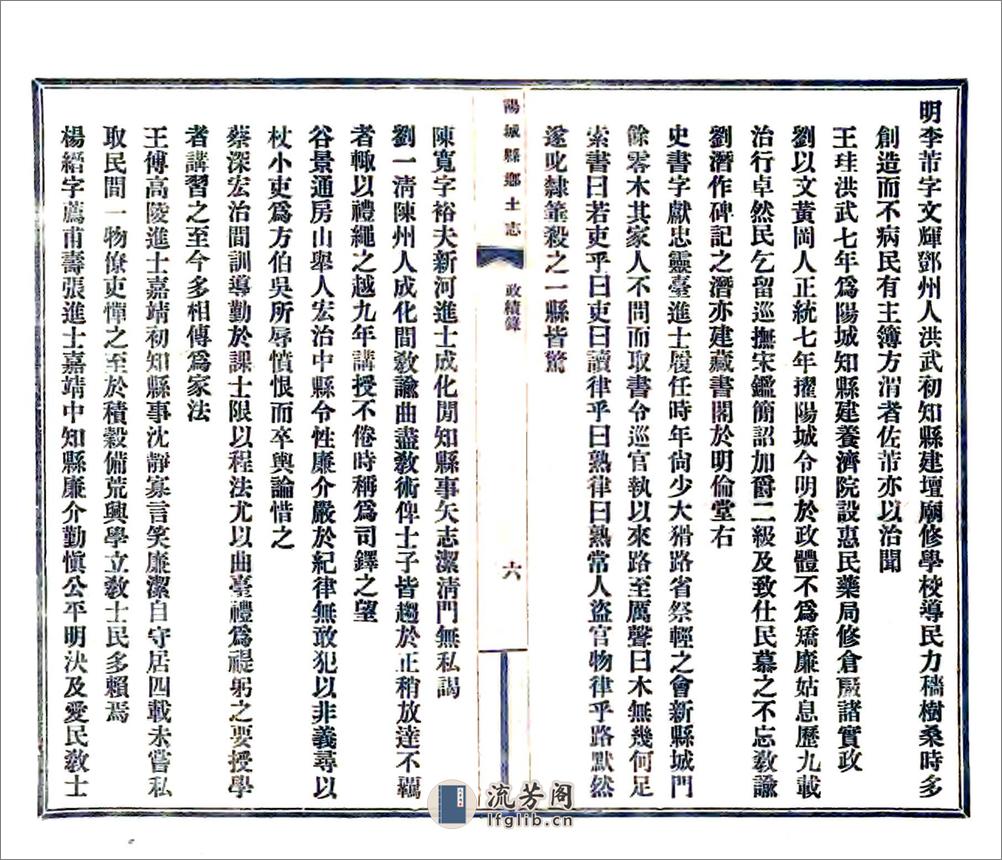 明李芾字文輝鄧州人洪武初知縣建壇廟修學校導民力穡樹桑時多
創造而不病民有主簿方渭者佐芾亦以治聞
王珪洪武七年爲陽城知縣建養濟院設惠民藥局修倉廠諸實政
劉以文黃岡人正統七年擢陽城令明於政體不爲矯廉姑息歷九載
治行卓然民乞留巡撫宋鑑簡詔加爵二級及致仕民慕之不忘敎諭
劉潛作碑記之潛亦建藏書閣於明倫堂右
史書字獻忠靈臺進士履任時年尙少大猾路省祭輕之會新縣城門
餘零木其家人不問而取書令巡官執以來路至厲聲曰木無幾何足
索書曰若吏乎曰吏曰讀律乎曰熟律曰熟常人盜官物律乎路默然
遂叱隸箠殺之一縣皆驚
陽城縣鄉土志
政績錄
六
陳寬字裕夫新河進士成化間知縣事矢志潔淸門無私謁
劉一淸陳州人成化間敎諭曲盡敎術俾士子皆趨於正稍放達不羈
者輒以禮繩之越九年講授不倦時稱爲司鐸之望
谷景通房山舉人宏治中縣令性廉介嚴於紀律無敢犯以非義尋以
杖小吏爲方伯吳所辱憤恨而卒輿論惜之
蔡深宏治間訓導勤於課士限以程法尤以曲臺禮爲禔躬之要授學
者講習之至今多相傳爲家法
王傅高陵進士嘉靖初知縣事沈靜寡言笑廉潔自守居四載未嘗私
取民間一物僚吏憚之至於積穀備荒興學立敎士民多賴焉
楊縉字薦甫壽張進士嘉靖中知縣廉介勤愼公平明決及愛民敎士
流芳阁
lfglib.cn